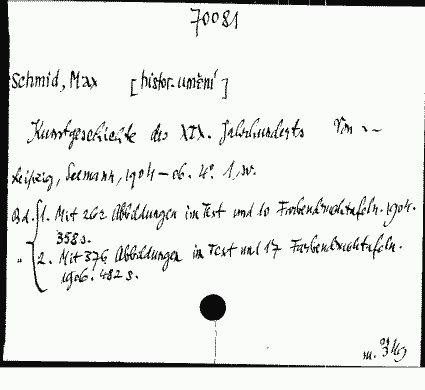 70081
Schmid, Max [histor. umění]
Kunstgeschichte des XIX. Jahrhunderts Von ~
Leipzig, Seemann, 1904-06. 4° 1, w.
Bd. 1. Mit 262 Abbildungen im Text und 10 Farbendrucktafeln. 1904.
358 s.
" 2. Mit 376 Abbildungen im Text und 17 Farbendrucktafeln.
1906. 482 s.